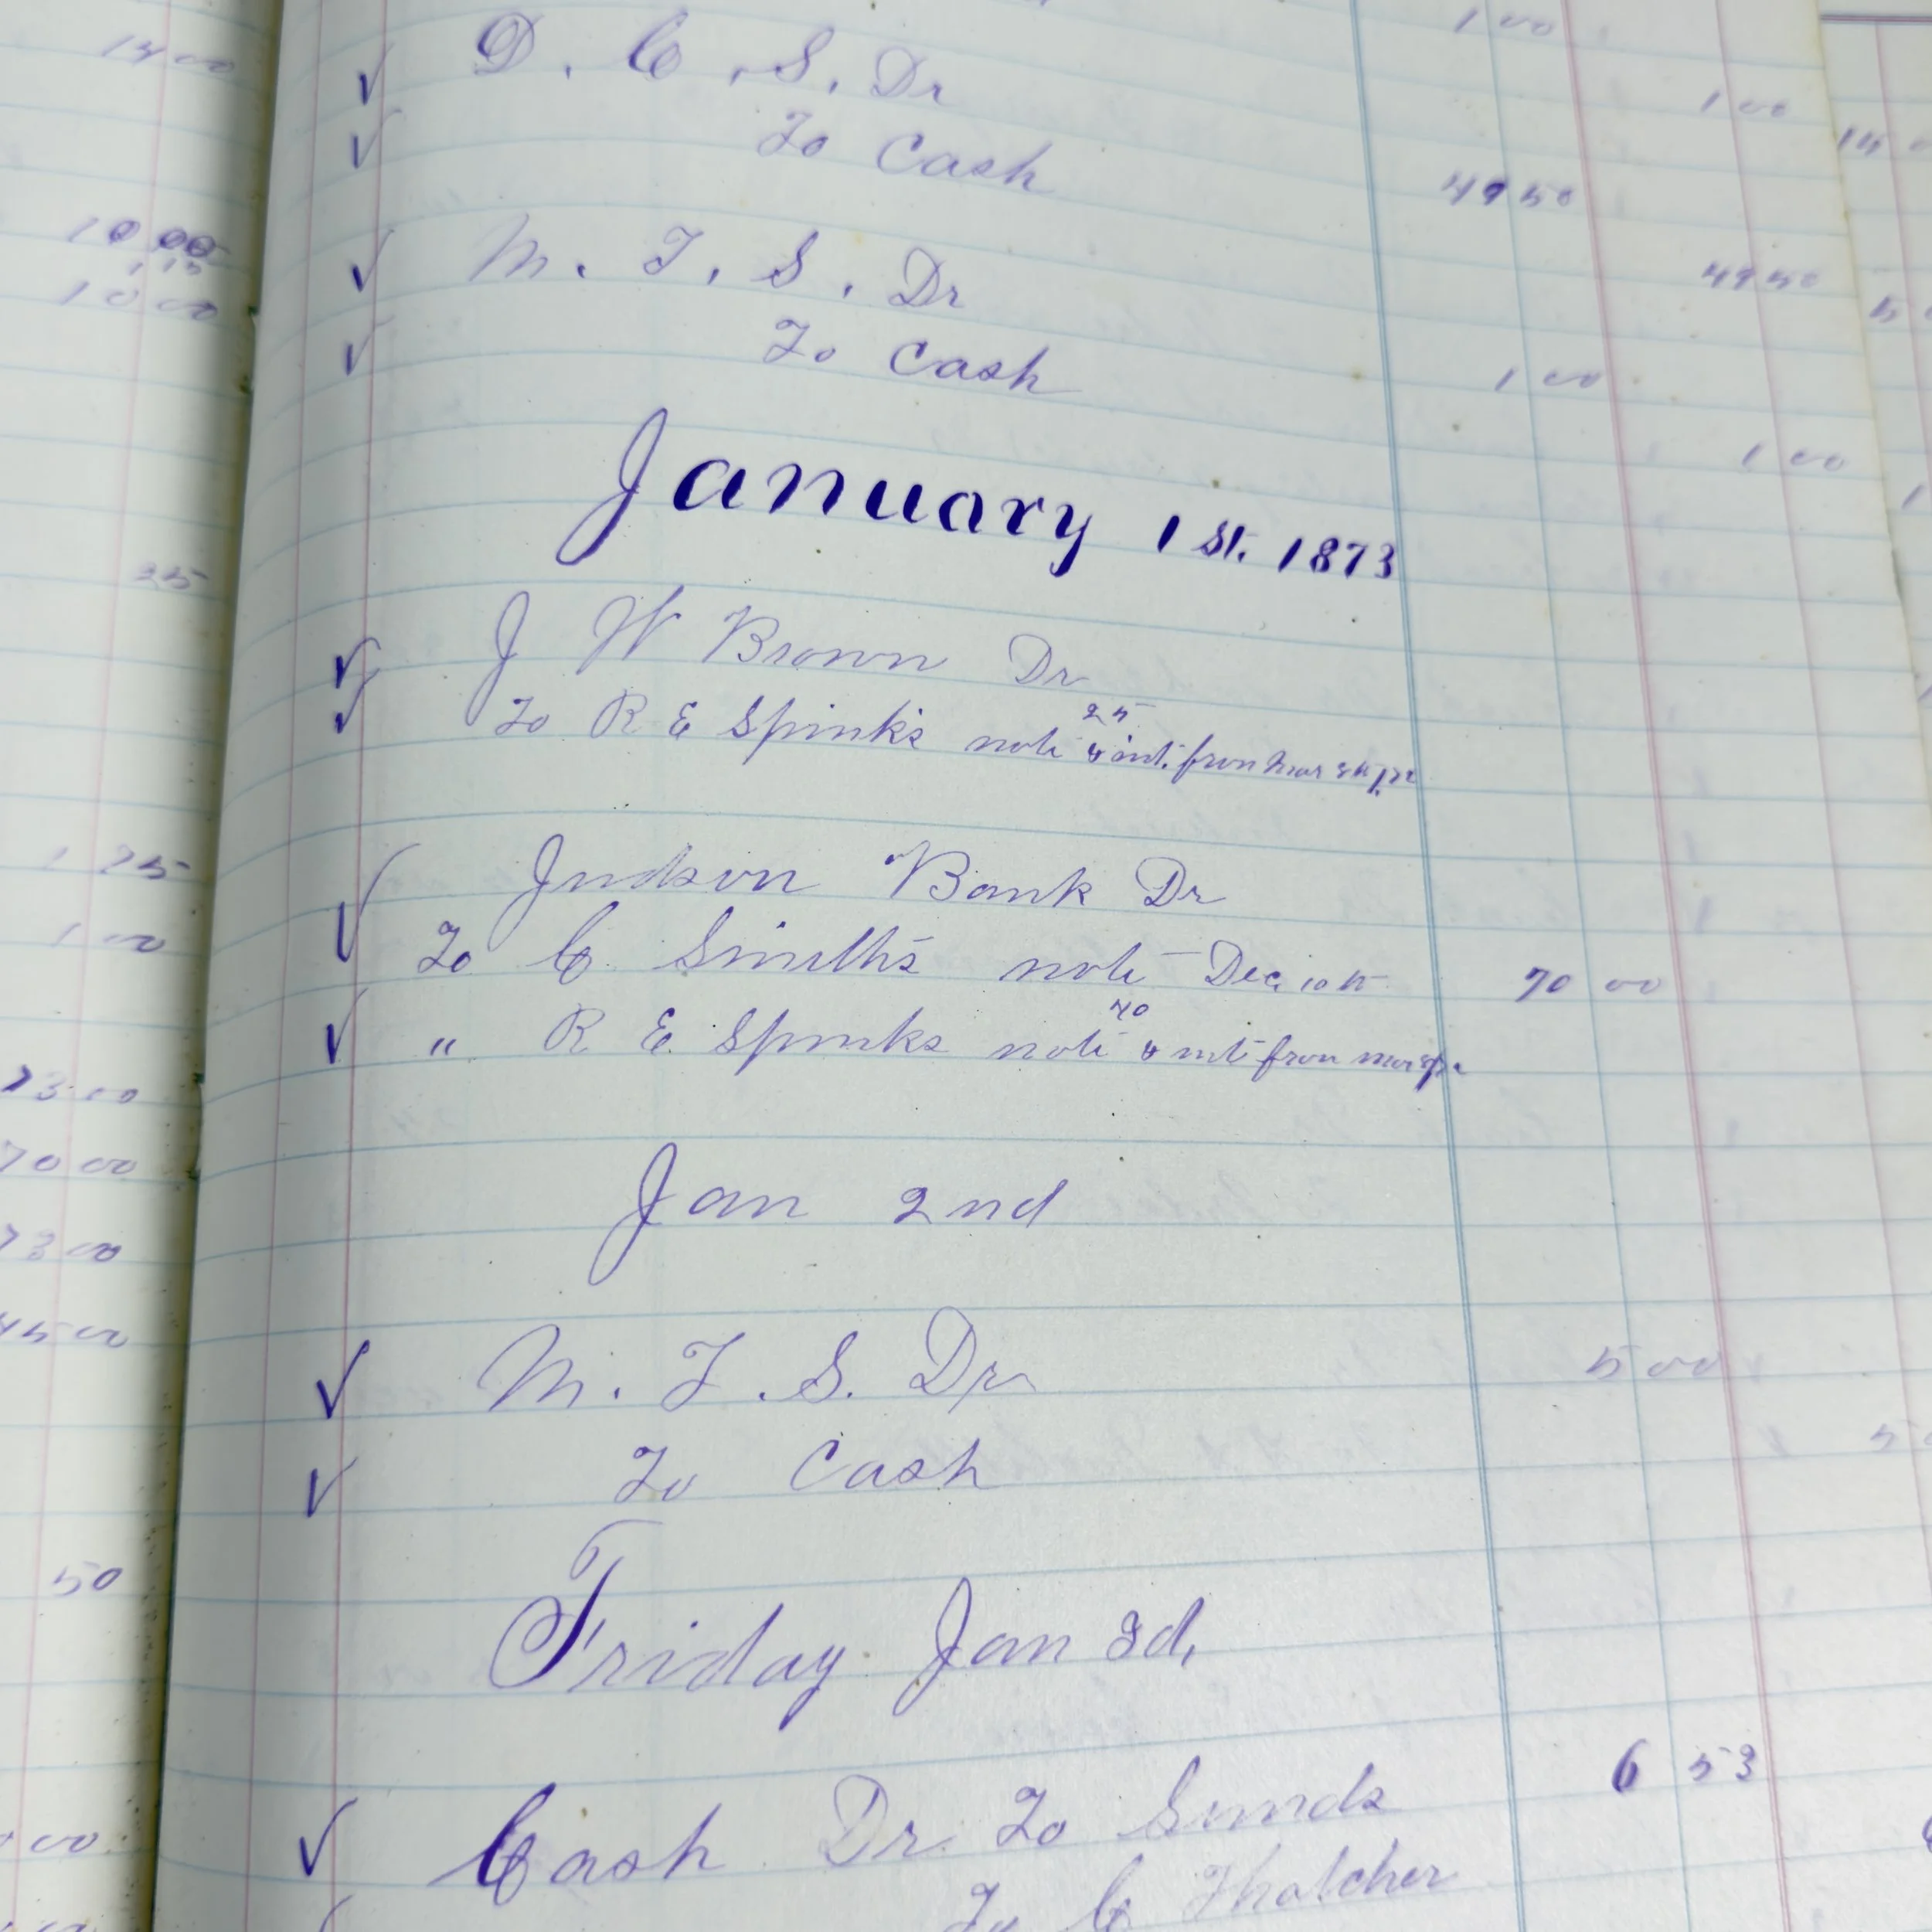 1400
1000
1000
25
1 25
1 00
7300
7000
7300
4500
50
00
1 00
D. C. S. Dr
1 00
To Cash
49 50
M. T. S. Dr
49 50
To Cash
1 00
1 00
January 1 St. 1873
J W Brown Dr
To R E Spink's note 25 & int. from Mar
Judson Bank Dr
To C. Smith's note Dec, 10th 70 00
" R E. Spinks note 70 & int from mar
Jan 2nd
M. T. S. Dr 5 00
To Cash
Friday Jan 3d,
Cash Dr. To Sunds 6 53
To C Thatcher